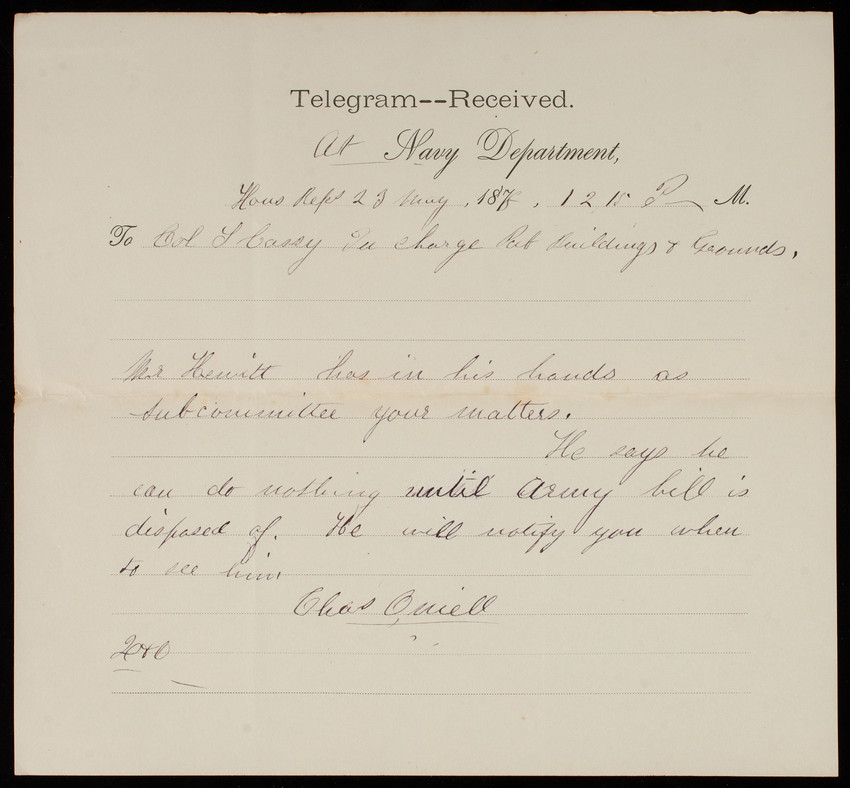 Telegram--Received.
At Navy Department,
Hous Reps 23 May, 1878, 12 15 P M.
To Col T Casey In charge Pub Buildings & Grounds,
Mr Hewitt has in his hands as
subcommittee your matters.
He says he
can do nothing until army bill is
disposed of. He will notify you when
to see him
Chas O,niell